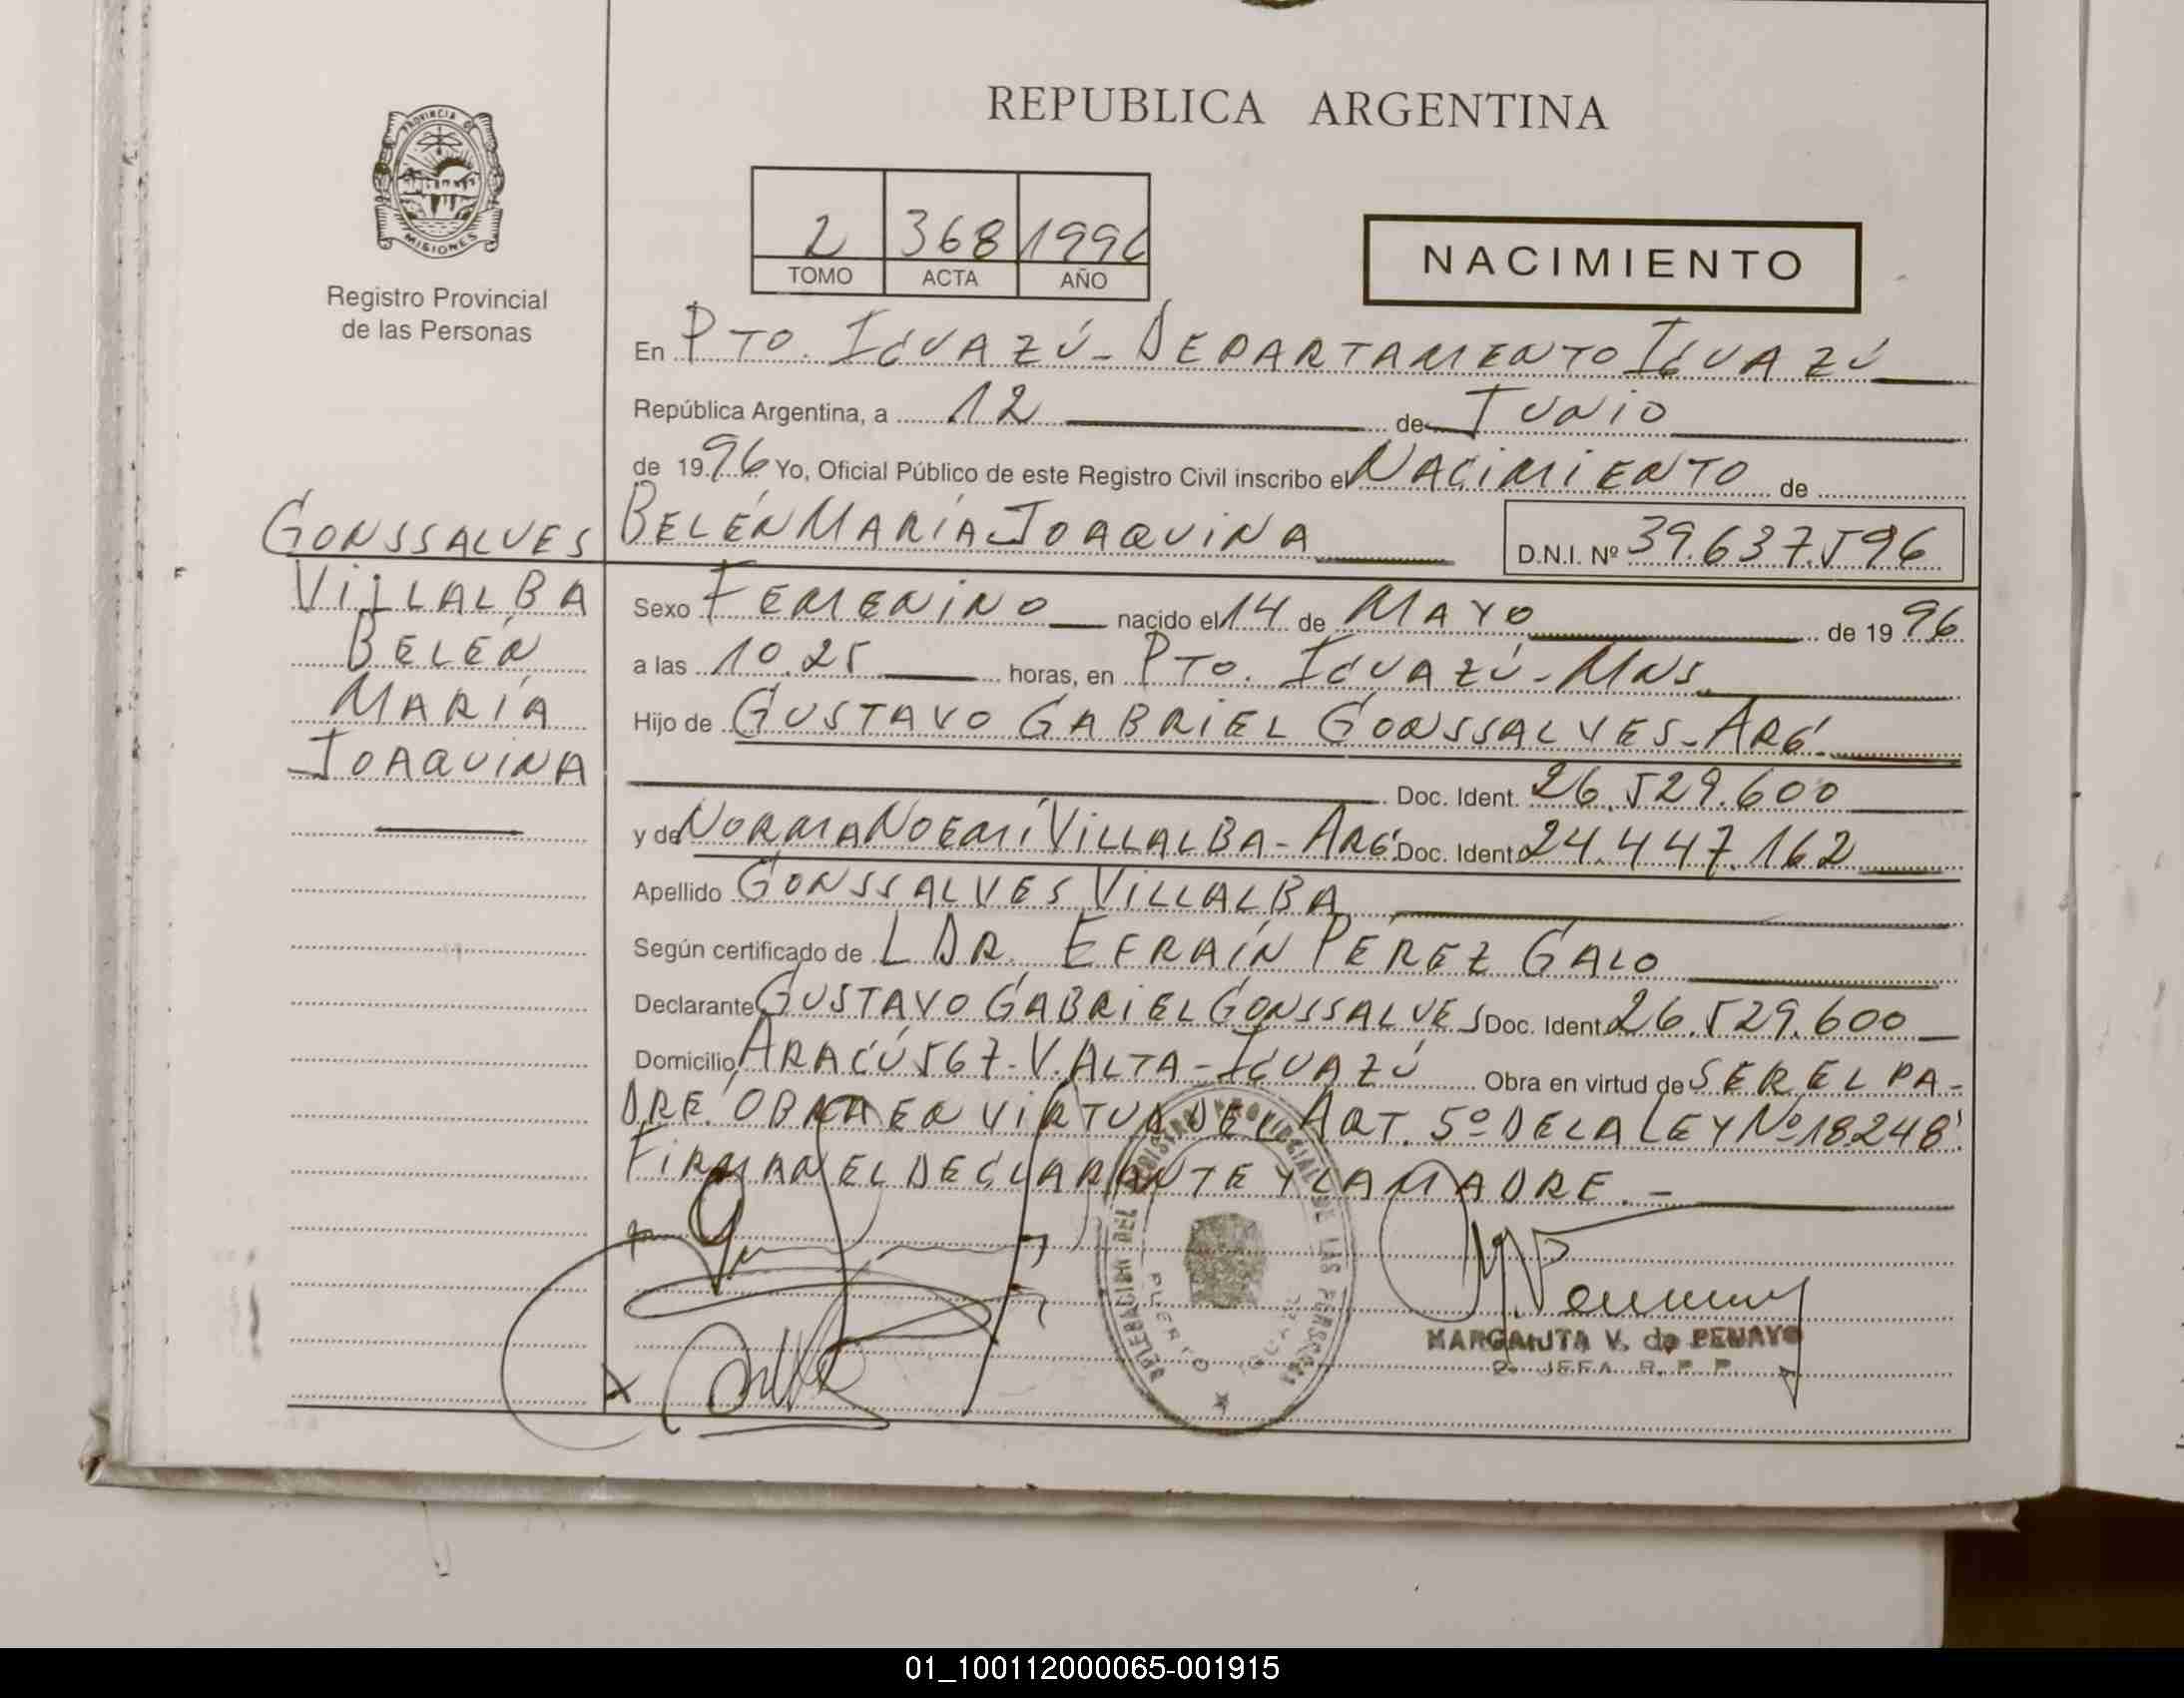 PROVINCIA DE
MISIONES
Registro Provincial
de las Personas
REPUBLICA ARGENTINA
2 368 1996
TOMO ACTA AÑO
NACIMIENTO
En PTO. IGUAZÚ - DEPARTAMENTO IGUAZÚ
República Argentina, a 12 de JUNIO
de 1996 Yo, Oficial Público de este Registro Civil inscribo el NACIMIENTO de
GONSSALVES BELÉN MARÍA JOAQUINA D.N.I. Nº 39.637.596
VILLALBA
BELÉN
MARÍA
JOAQUINA
Sexo FEMENINO nacido el 14 de MAYO de 1996
a las 10.25 horas, en PTO. IGUAZÚ - MNS.
Hijo de GUSTAVO GABRIEL GONSSALVES - ARG.
Doc. Ident. 26.529.600
y de NORMA NOEMÍ VILLALBA - ARG. Doc. Ident. 24.447.162
Apellido GONSSALVES VILLALBA
Según certificado de L DR. EFRAÍN PÉREZ GALO
Declarante GUSTAVO GABRIEL GONSSALVES Doc. Ident. 26.529.600
Domicilio ARAGÚ 567 - V. ALTA - IGUAZÚ Obra en virtud de SER EL PA-
DRE. OBRA EN VIRTUD DEL ART. 5º DE LA LEY Nº 18248.
FIRMAN EL DECLARANTE Y LA MADRE. -
DELEGACION DEL REGISTRO PROVINCIAL DE LAS PERSONAS
PUERTO IGUAZU
MARGARITA V. de PENAYO
2. JEFA R. P. P.
01_100112000065-001915